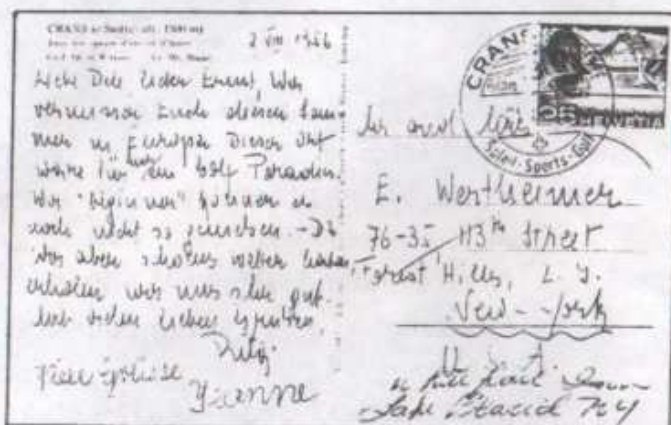 CRANS s/Sierre, alt. 1500 m
2 VIII 1956
Liebe Die lieber Ernst, Wir
vermissen Euch diesen Som-
mer in Europa Dieser Ort
wäre für ein Golf Paradies.
Wir "beginner" können es
noch nicht so geniessen. - Da
wir aber schönes Wetter haben,
erholen wir uns sehr gut.
Mit vielen lieben Grüssen,
Viele Grüsse
Yvonne
CRANS
Soleil - Sports - Golf
25 HELVETIA
Mr and Mrs
E. Wertheimer
76-35 113th Street
Forest Hills, L. I.
New-York
U. S. A.
Lake Placid NY